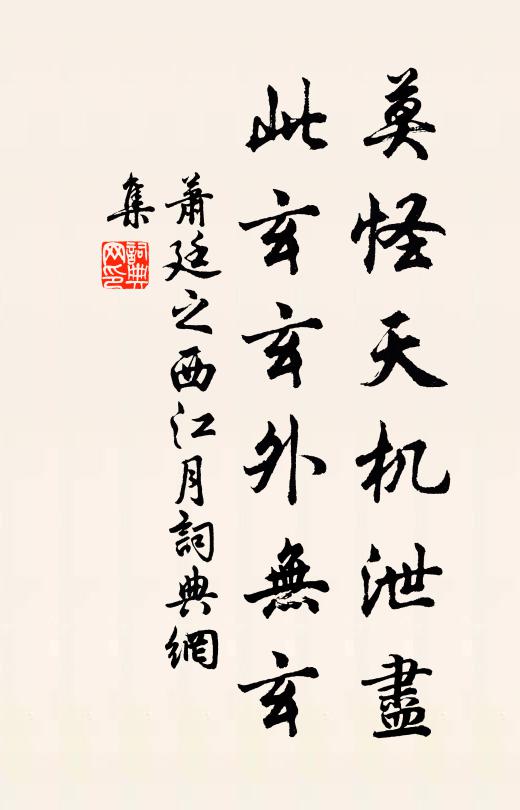 莫怪天机泄盡
此玄玄外無玄
蕭廷之西江月詞典網
集
詞典
网印